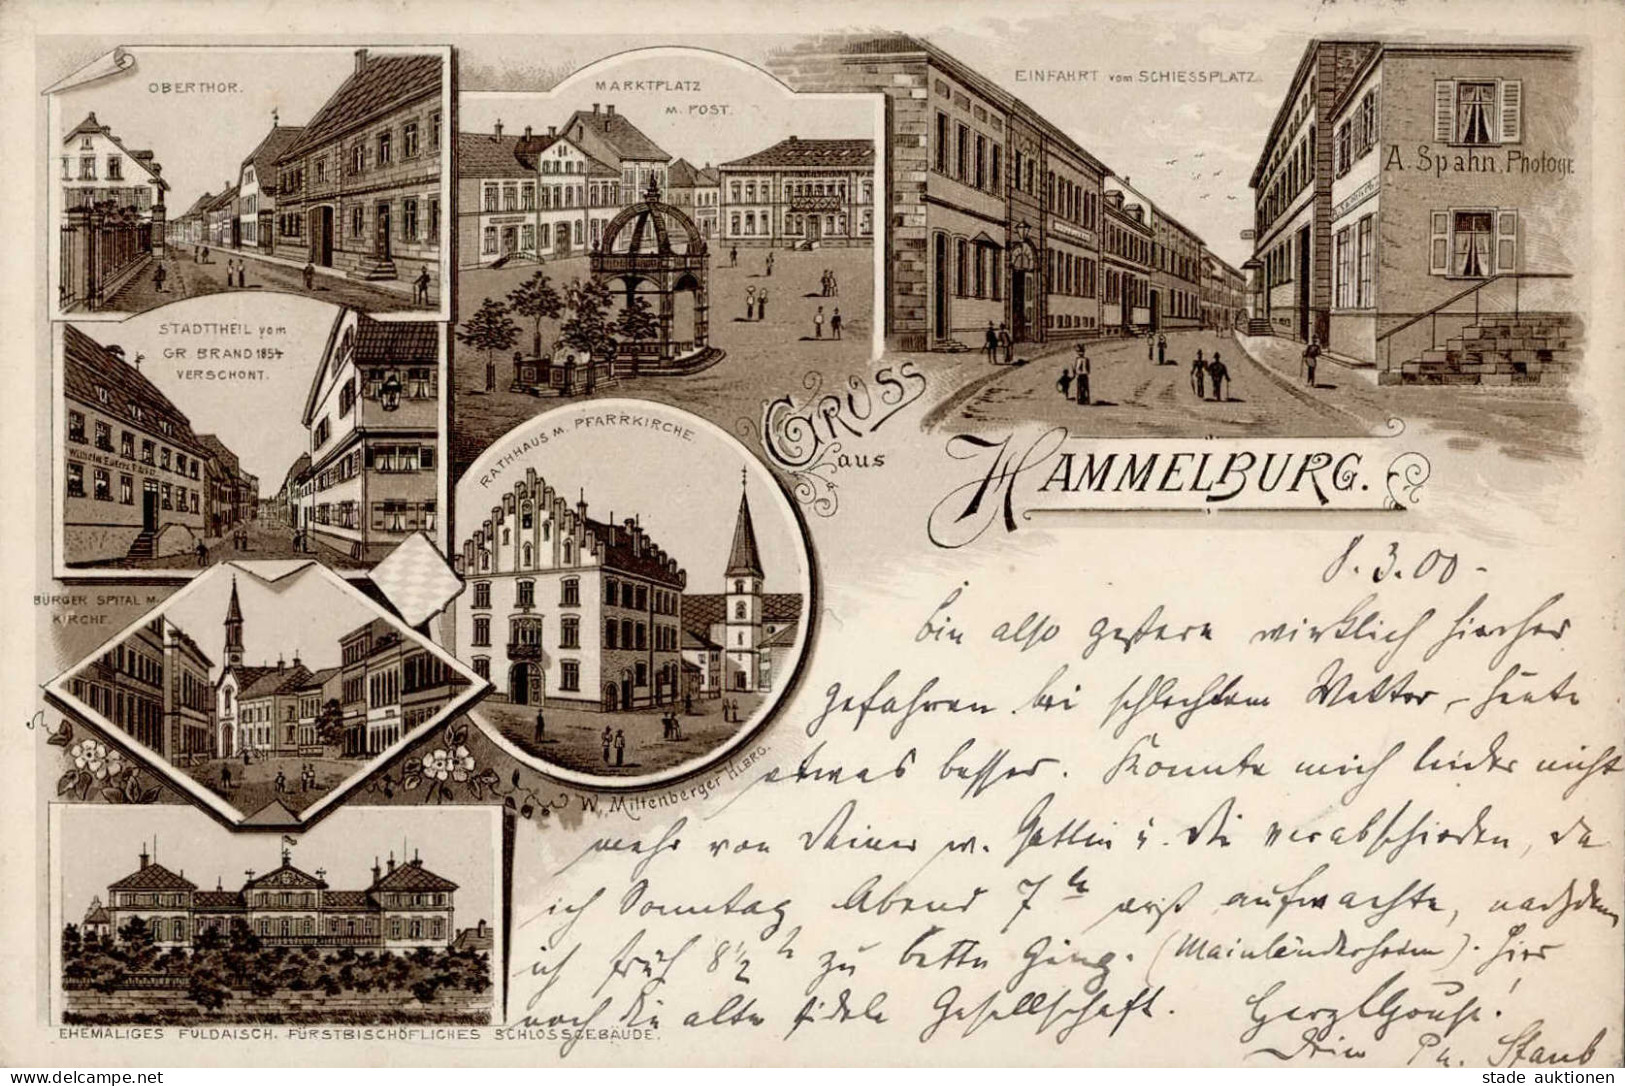 OBERTHOR.
MARKTPLATZ
M. POST.
EINFAHRT vom SCHIESSPLATZ.
A. Spahn, Photogr.
STADTTHEIL vom
GR. BRAND 1854
VERSCHONT.
RATHHAUS M. PFARRKIRCHE.
GRUSS
aus
HAMMELBURG.
BÜRGER SPITAL M.
KIRCHE.
W. Miltenberger HLBRG.
EHEMALIGES FULDAISCH. FÜRSTBISCHÖFLICHES SCHLOSSGEBÄUDE.
8.3.00 -
bin also gestern wirklich hierher
gefahren bei schlechtem Wetter, - heute
etwas besser. Konnte mich leider nicht
mehr von Deiner w. Gattin u. Dir verabschieden, da
ich Sonntag Abend 7 h erst aufwachte, nachdem
ich früh 8 1/2 h zu Bette ging. (Mainländerheim). Hier
noch die alte fidele Gesellschaft. Herzl Grüße!
Dein Staub
stade auktionen